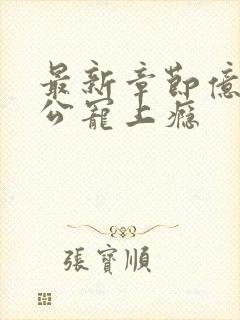 最新章節億
公寵上癮
張寶順